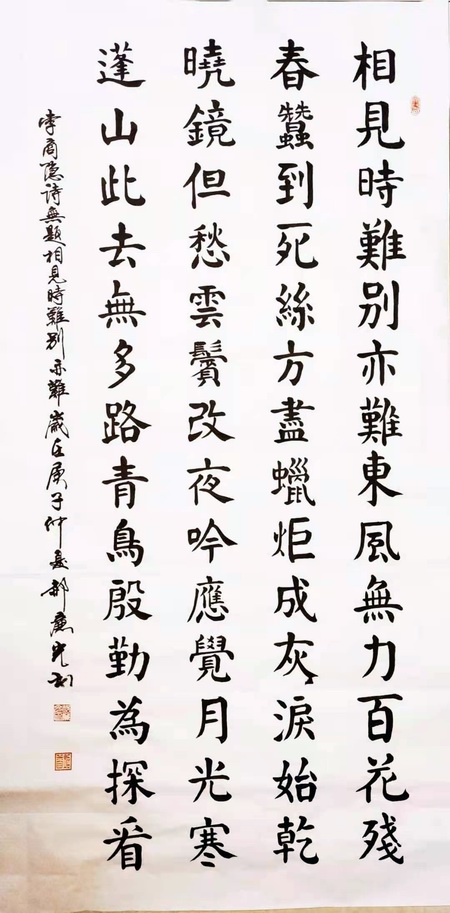 相見時難別亦難東風無力百花殘
春蠶到死絲方盡蠟炬成灰淚始乾
曉鏡但愁雲鬢改夜吟應覺月光寒
蓬山此去無多路青鳥殷勤為探看
李商隱詩無題相見時難別亦難歲在庚子仲夏郝